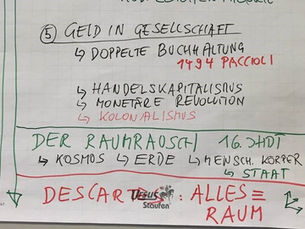 ⑤ GELD IN GESELLSCHAFT
↳ DOPPELTE BUCHHALTUNG
1494 PACCIOLI
↳ HANDELSKAPITALISMUS
↳ MONETÄRE REVOLUTION
↳ KOLONIALISMUS
DER RAUMRAUSCH 16. JHDT
↳ KOSMOS ↳ ERDE ↳ MENSCH. KÖRPER
↳ STAAT
DESCARTES: ALLES ≡
RAUM
Staufen